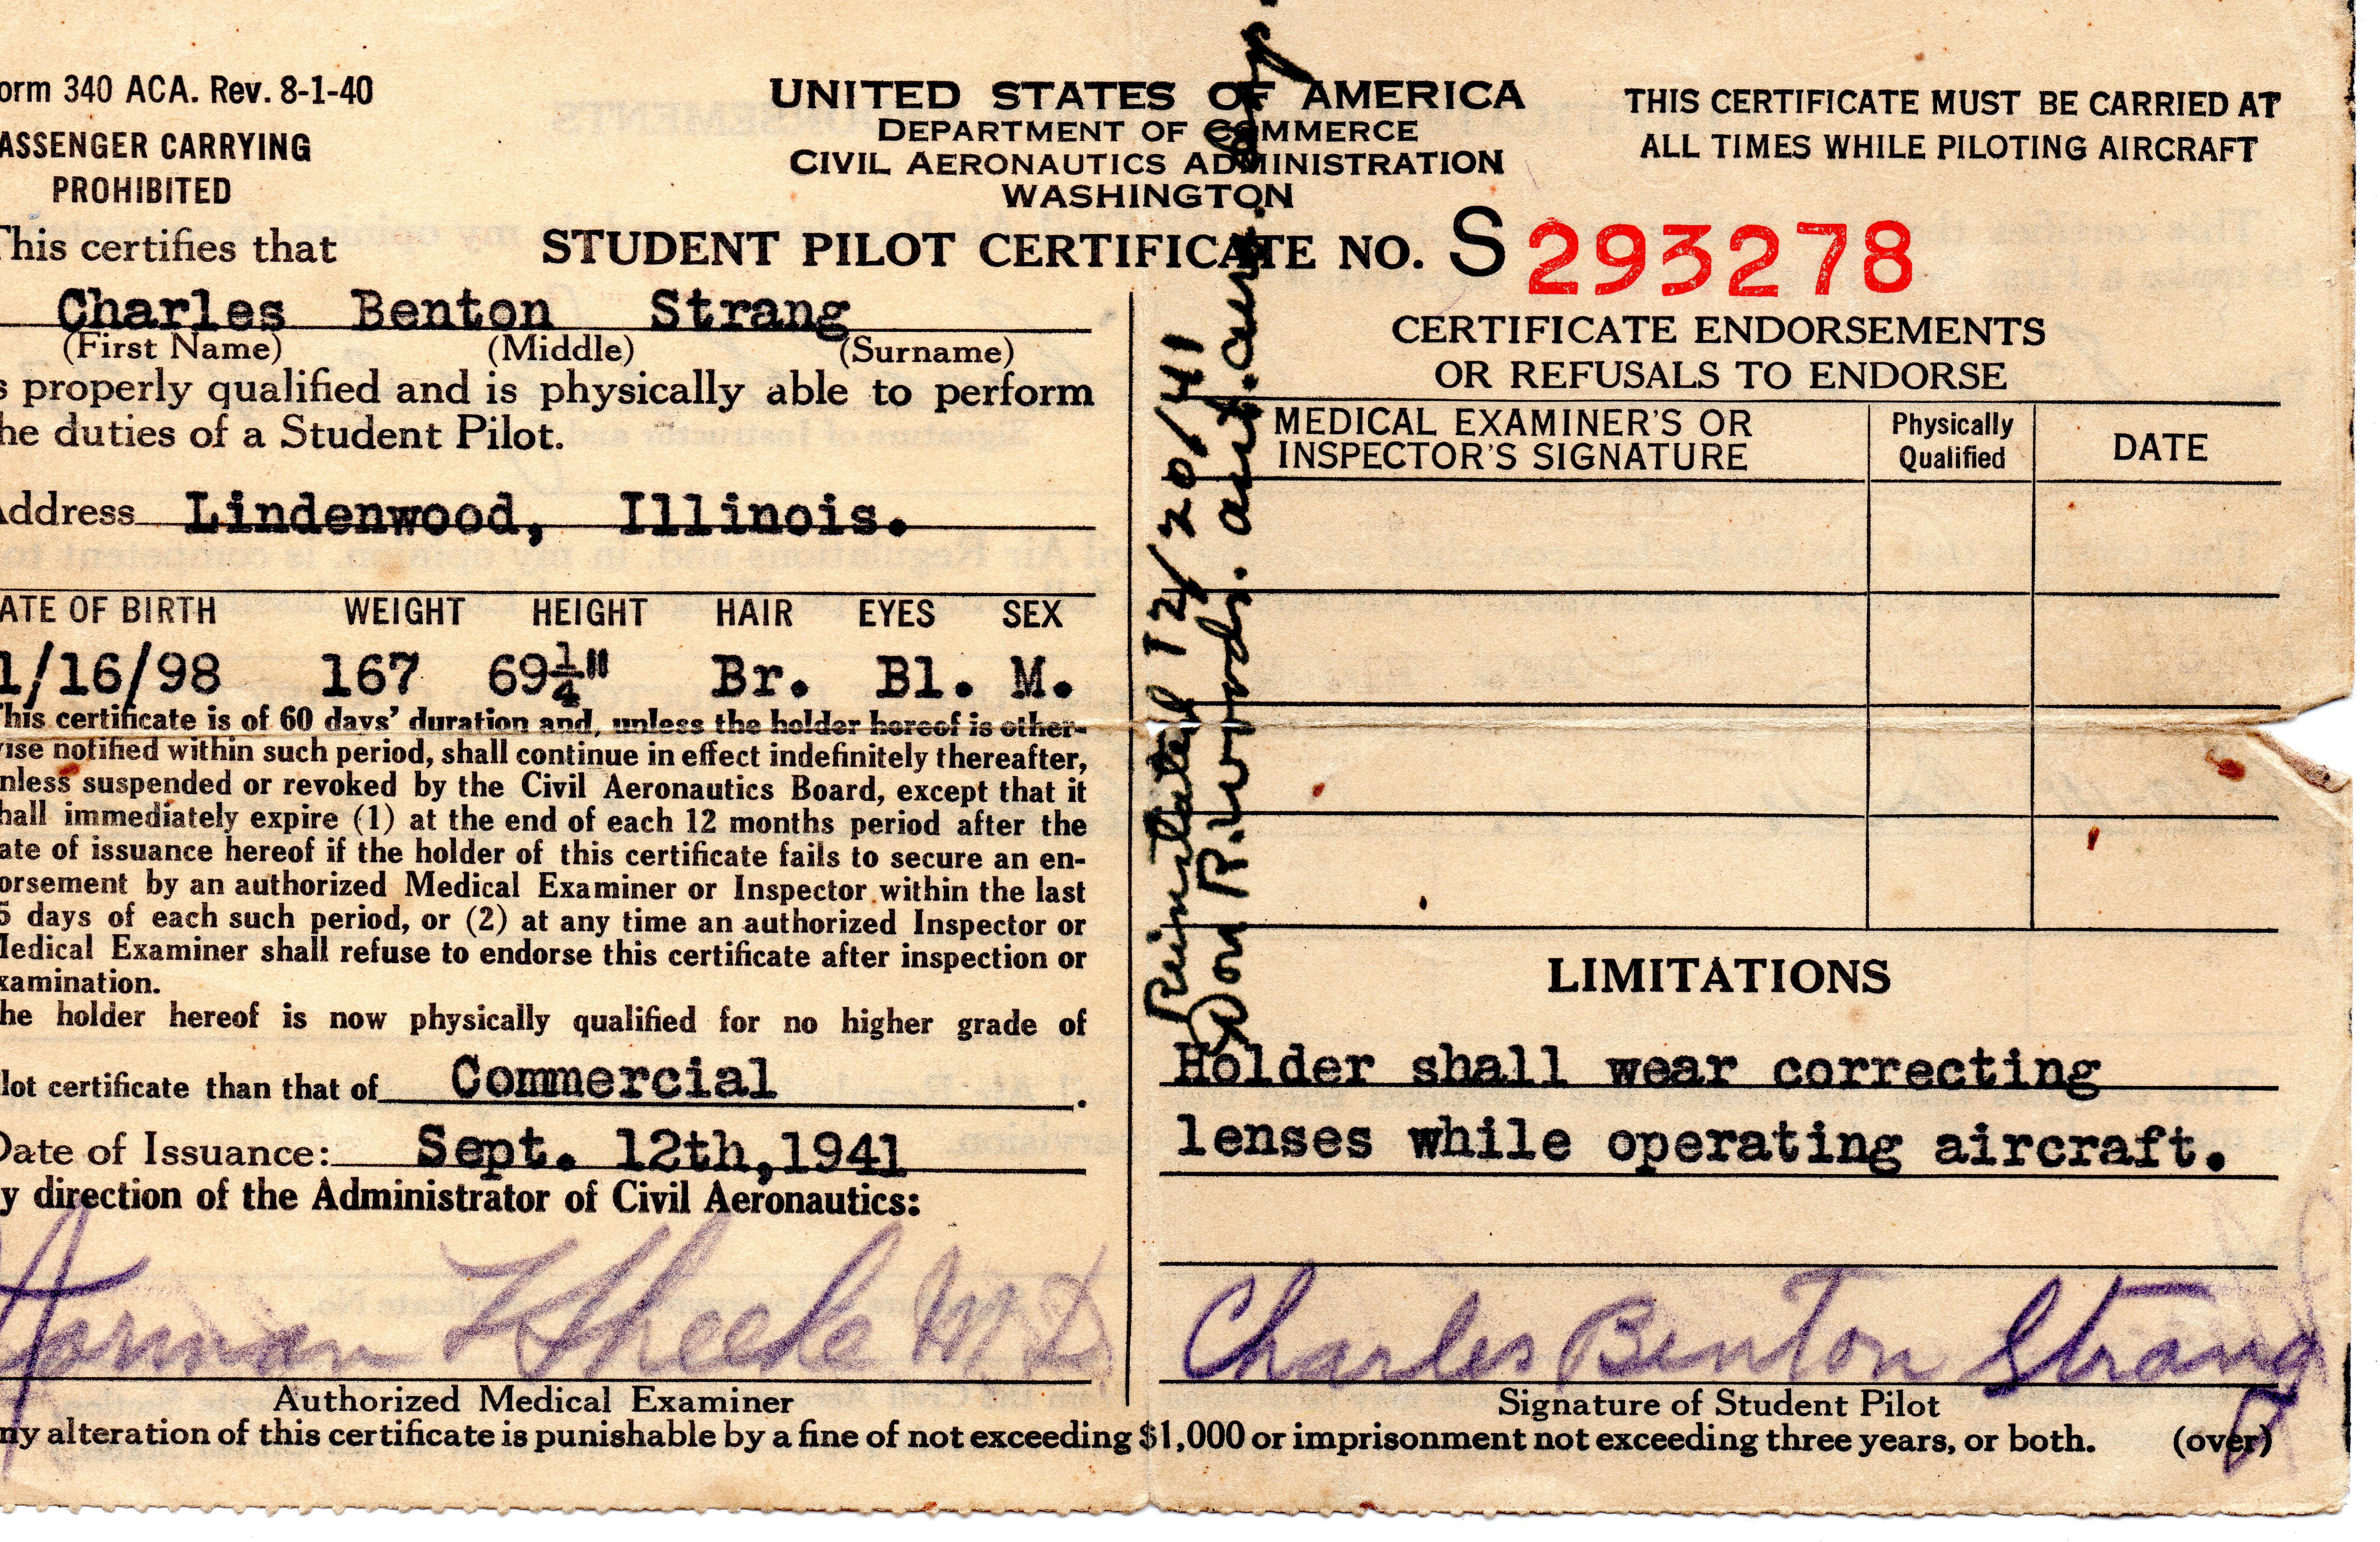 orm 340 ACA. Rev. 8-1-40
ASSENGER CARRYING
PROHIBITED
UNITED STATES OF AMERICA
DEPARTMENT OF COMMERCE
CIVIL AERONAUTICS ADMINISTRATION
WASHINGTON
THIS CERTIFICATE MUST BE CARRIED AT
ALL TIMES WHILE PILOTING AIRCRAFT
This certifies that
STUDENT PILOT CERTIFICATE NO. S 293278
Charles Benton Strang
(First Name) (Middle) (Surname)
s properly qualified and is physically able to perform
he duties of a Student Pilot.
Address Lindenwood, Illinois.
ATE OF BIRTH WEIGHT HEIGHT HAIR EYES SEX
1/16/98 167 69¼" Br. Bl. M.
This certificate is of 60 days' duration and, unless the holder hereof is other-
ise notified within such period, shall continue in effect indefinitely thereafter,
nless suspended or revoked by the Civil Aeronautics Board, except that it
hall immediately expire (1) at the end of each 12 months period after the
ate of issuance hereof if the holder of this certificate fails to secure an en-
orsement by an authorized Medical Examiner or Inspector within the last
5 days of each such period, or (2) at any time an authorized Inspector or
Medical Examiner shall refuse to endorse this certificate after inspection or
xamination.
he holder hereof is now physically qualified for no higher grade of
lot certificate than that of Commercial.
Date of Issuance: Sept. 12th,1941
y direction of the Administrator of Civil Aeronautics:
Norman L Sheehe M D
Authorized Medical Examiner
Reinstated 12/20/41
Don R.
CERTIFICATE ENDORSEMENTS
OR REFUSALS TO ENDORSE
MEDICAL EXAMINER'S OR
INSPECTOR'S SIGNATURE
Physically
Qualified
DATE
LIMITATIONS
Holder shall wear correcting
lenses while operating aircraft.
Charles Benton Strang
Signature of Student Pilot
ny alteration of this certificate is punishable by a fine of not exceeding $1,000 or imprisonment not exceeding three years, or both. (over)